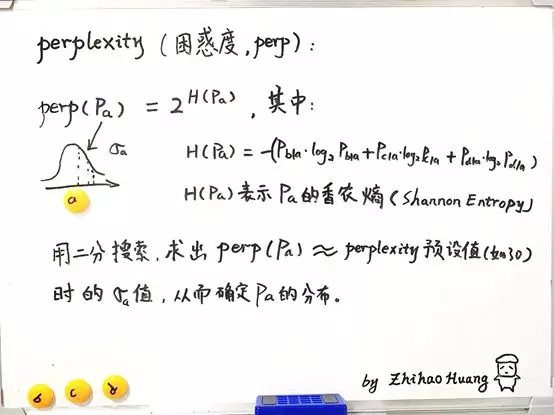 perplexity (困惑度,perp):
perp(Pa) = 2^H(Pa), 其中:
σa
H(Pa) = -(Pb|a·log₂Pb|a+Pc|a·log₂Pc|a + Pd|a·log₂Pd|a)
a
H(Pa)表示Pa的香农熵(Shannon Entropy)
用二分搜索,求出perp(Pa)≈perplexity预设值(如30)
时的σa值,从而确定Pa的分布。
b c d
by Zhihao Huang